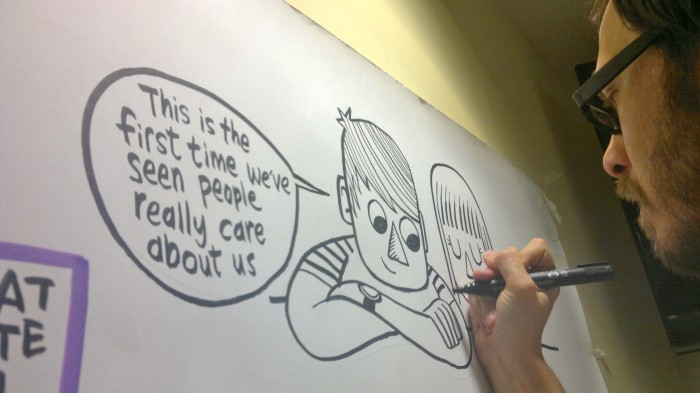 This is the
first time we've
seen people
really care
about us
AT
TE